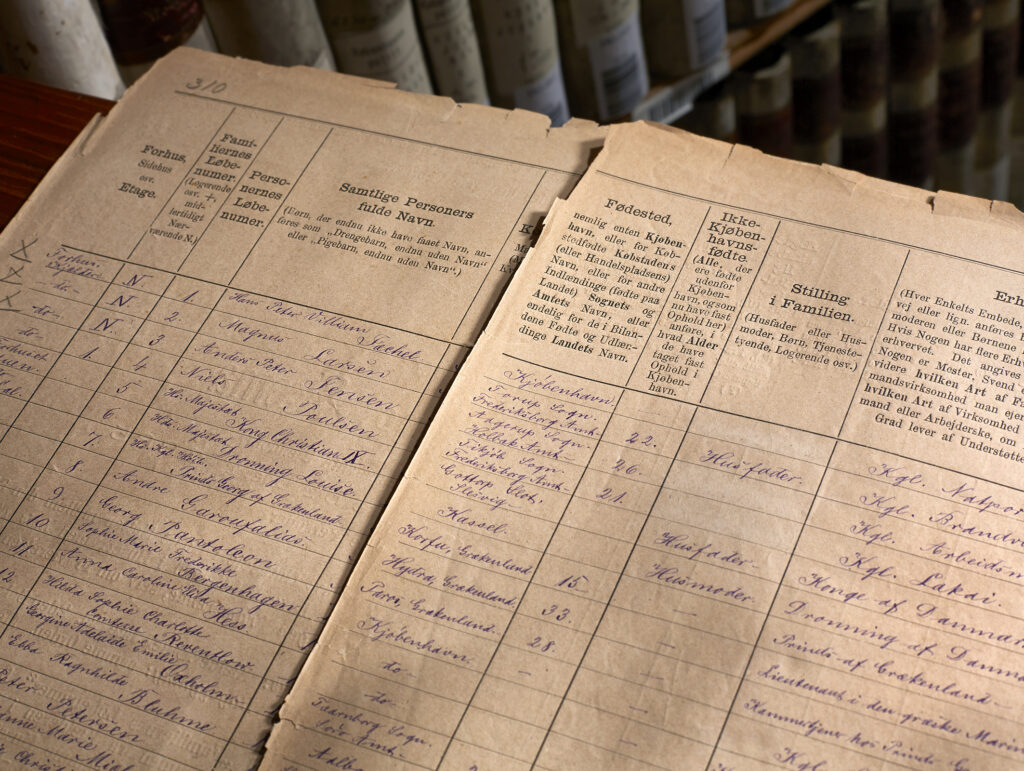 310
Forhus,
Sidehus
osv.
Etage.
Fami-
liernes
Løbe-
numer.
(Logerende
osv. +,
mid-
lertidigt
Nær-
værende N.)
Perso-
nernes
Løbe-
numer.
Samtlige Personers
fulde Navn.
(Børn, der endnu ikke have faaet Navn, an-
føres som „Drengebarn, endnu uden Navn“
eller „Pigebarn, endnu uden Navn“.)
K
Fødested,
nemlig enten Kjøben-
havn, eller for Køb-
stedfødte Købstadens
(eller Handelspladsens)
Navn, eller for andre
Indlændinge (fødte paa
Landet) Sognets og
Amtets Navn, eller
endelig for de i Bilan-
dene Fødte og Udlæn-
dinge Landets Navn.
Ikke-
Kjøben-
havns-
fødte.
(Alle, der
ere fødte
udenfor
Kjøben-
havn, og som
nu have fast
Ophold her)
anføre, i
hvad Alder
de have
taget fast
Ophold i
Kjøben-
havn.
Stilling
i Familien.
(Husfader eller Hus-
moder, Børn, Tjeneste-
tyende, Logerende osv.)
Erh
(Hver Enkelts Embede,
vej eller lign. anføres
moderen eller Børnene
Hvis Nogen har flere Erh
erhvervet. Det angives
Nogen er Mester, Svend
videre hvilken Art af F
mandsvirksomhed man ejer
hvilken Art af Virksomhed
mand eller Arbejderske, om
Grad lever af Understøtte
Forhus.
do.
N
1.
Hans Peter Villiam
Kjøbenhavn
Kgl.
do.
N
2.
Magnus Larsen
Torup Sogn.
Frederiksborg Amt.
22.
Husfader.
Kgl.
do.
N
3.
Anders Peter Jensen
Aagerup Sogn
Holbæk Amt.
26.
Kgl.
1.
4.
Niels Poulsen
Tikjøb Sogn
Frederiksborg Amt.
21.
Kgl. Lakai.
5.
Hs. Majestæt Kong Christian IX.
Gottorp Slot,
Slesvig.
Husfader.
Konge af Danmar
6.
Hds. Majestæt Dronning Louise
Kassel.
Husmoder.
Dronning af Danma
7.
Prinds Georg af Grækenland
Korfu, Grækenland
15.
Prinds af Grækenland
8.
Andre Garoufalides.
Hydra, Grækenland.
33.
Lieutenant i den græske Marin
9.
Georg Pantoleon
Paros, Grækenland.
28.
Kammertjener hos Prinds G
10.
Sophie Marie Frederikke
Bergenhagen
Kjøbenhavn.
11.
Anna Caroline Hilda Hess
do
12.
Hilda Sophie Charlotte
Reventlow
do
Georgine Adelaide Emilie Oxholm
Ebba Ragnhilde Bluhme
Peter Petersen
Marie